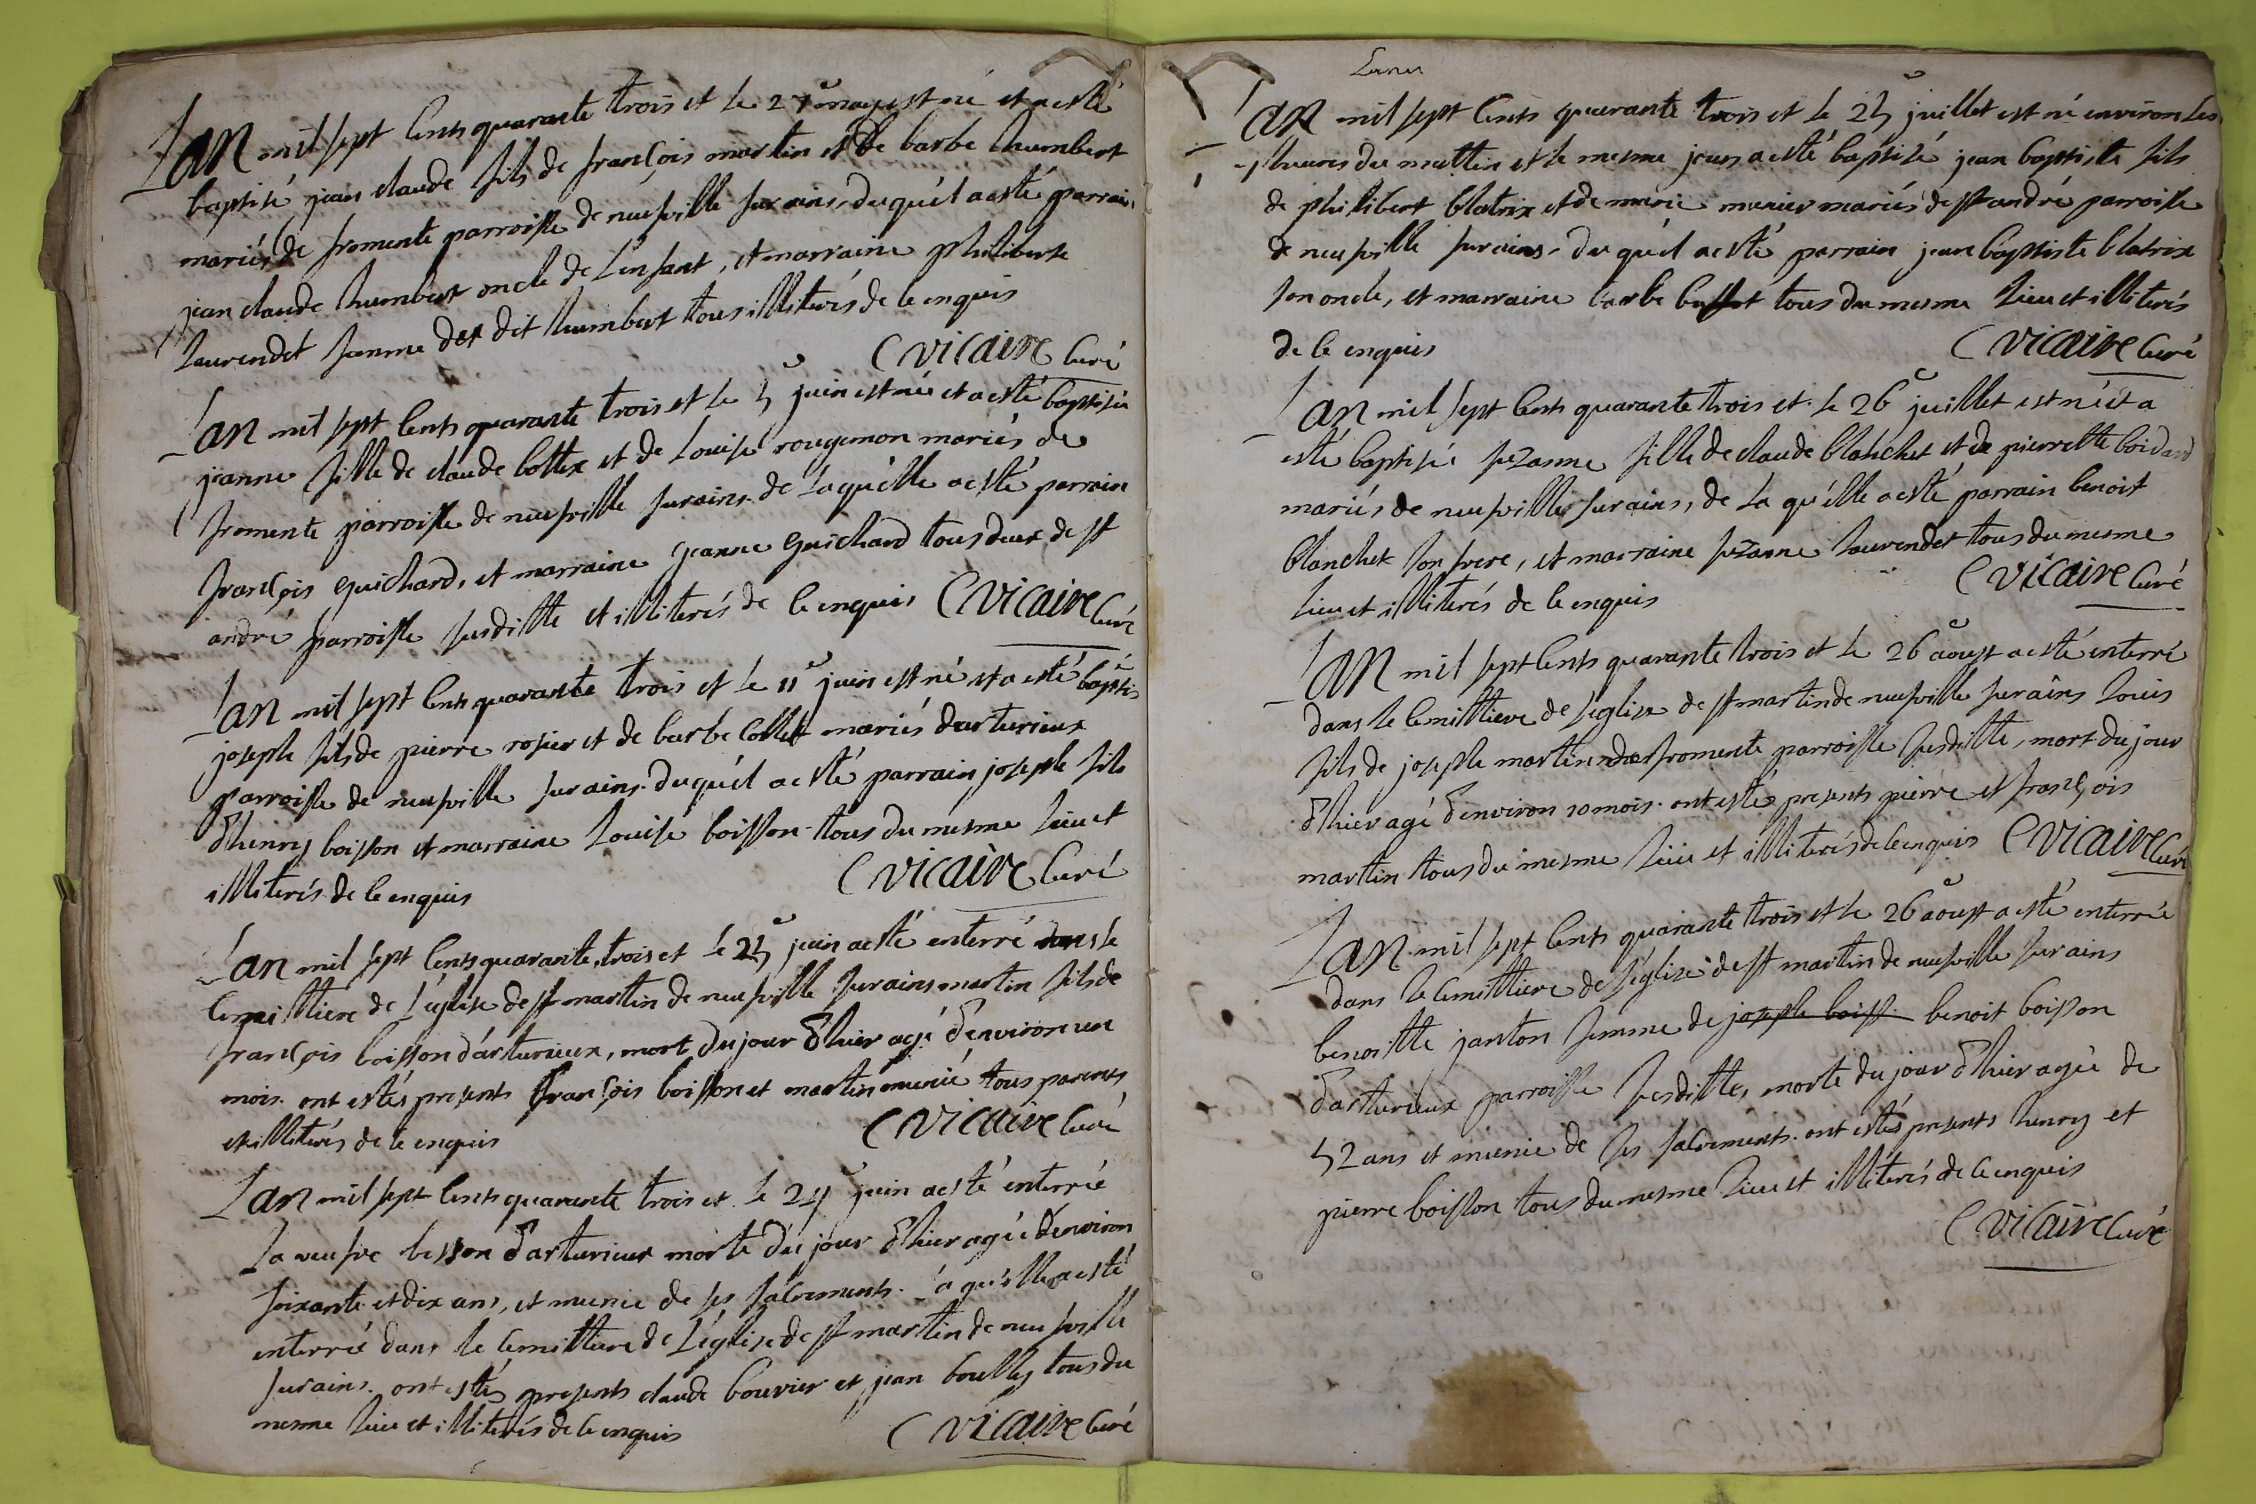 Lan mil sept cents quarante trois et le 27e may est né et a esté
baptisé jean claude fils de françois martin et de barbe humbert
mariés de fromente parroisse de neufville sur ains. duquel a esté parrain
jean claude humbert oncle de l'enfant, et marraine philiberte
laurendet femme du dit humbert tous illiterés de ce enquis
C vicaire curé
Lan mil sept cents quarante trois et le 5e juin est née et a esté baptisée
jeanne fille de claude bottex et de Louise rougemon mariés de
fromente parroisse de neufville sur ains. de laquelle a esté parrain
françois guichard, et marraine jeanne guichard tous deux de st
andré parroisse susditte et illiterés de ce enquis C vicaire curé
Lan mil sept cents quarante trois et le 11e juin est né et a esté baptisé
joseph fils de pierre rosier et de barbe collet mariés d'arturieux
parroisse de neufville sur ains. duquel a esté parrain joseph fils
d'henry boisson et marraine Louise boisson tous du mesme lieu et
illiterés de ce enquis C vicaire curé
Lan mil sept cents quarante trois et le 25e juin a esté enterré dans le
cemittiere de L'église de st martin de neufville sur ains martin fils de
françois boisson d'arturieux, mort du jour d'hier agé d'environ un
mois. ont estés presents françois boisson et martin munié tous parents
et illiterés de ce enquis C vicaire curé
Lan mil sept cents quarante trois et le 29e juin a esté enterrée
La veufve besson d'arturieux morte du jour d'hier agée d'environ
soixante et dix ans, et munie de ses sacrements. laquelle a esté
enterrée dans le cemittiere de L'église de st martin de neufville
sur ains. ont estés presents claude bouvier et jean boully tous du
mesme lieu et illiterés de ce enquis C vicaire curé
Lan mil sept cents quarante trois et le 25e juillet est né environ les
heures du mattin et le mesme jour a esté baptisé jean baptiste fils
de philibert blatrix et de marie munier mariés de st andré parroisse
de neufville sur ains. duquel a esté parrain jean baptiste blatrix
son oncle, et marraine barbe buffet tous du mesme lieu et illiterés
de ce enquis C vicaire curé
Lan mil sept cents quarante trois et le 26e juillet est née et a
esté baptisée suzanne fille de claude blanchet et de pierrette boidard
mariés de neufville sur ains, de laquelle a esté parrain benoit
blanchet son frere, et marraine suzanne laurendet tous du mesme
lieu et illiterés de ce enquis C vicaire curé
Lan mil sept cents quarante trois et le 26e aoust a esté enterré
dans le cemittiere de l'église de st martin de neufville sur ains louis
fils de joseph martin de fromente parroisse susditte, mort du jour
d'hier agé d'environ 10 mois. ont estés presents pierre et françois
martin tous du mesme lieu et illiterés de ce enquis C vicaire curé
Lan mil sept cents quarante trois et le 26e aoust a esté enterrée
dans le cemittiere de l'église de st martin de neufville sur ains
benoitte janton femme de joseph boiss. benoit boisson
d'arturieux parroisse susditte, morte du jour d'hier agée de
52 ans et munie de ses sacrements. ont estés presents henry et
pierre boisson tous du mesme lieu et illiterés de ce enquis
C vicaire curé